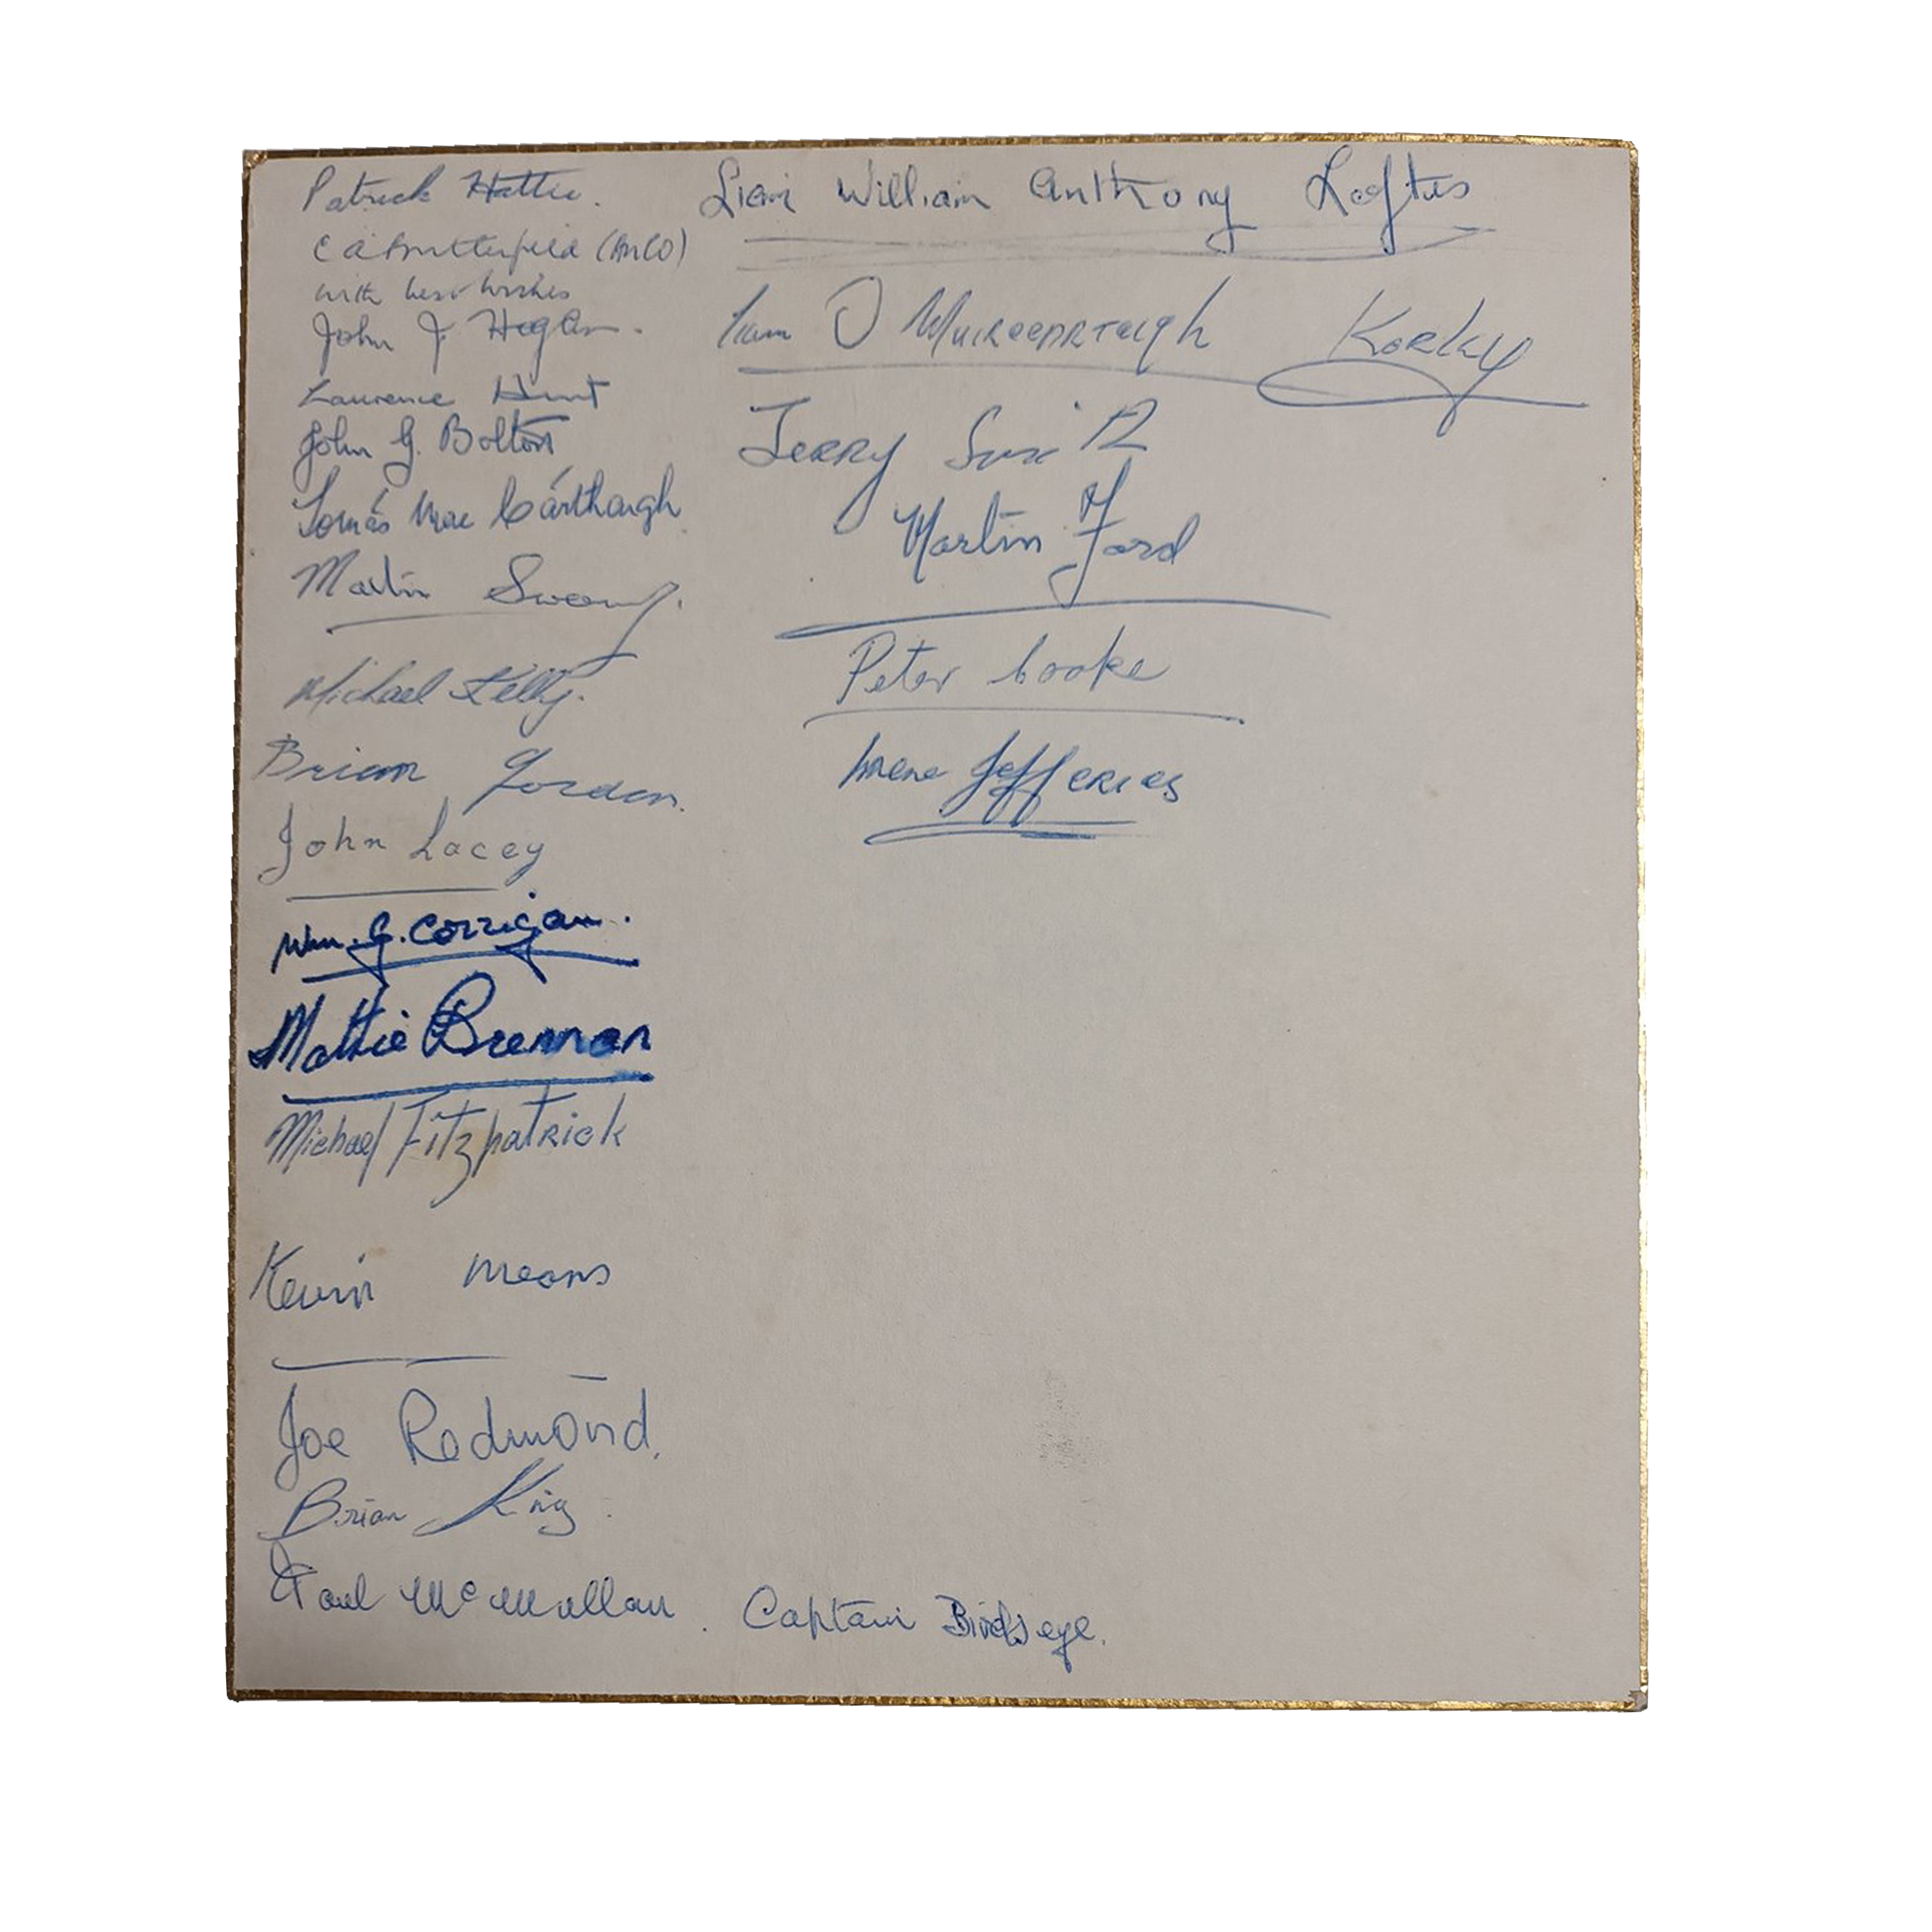 Patrick Hattie.
C A Butterfield (AnCO)
with best wishes
John J. Hogan.
Laurence Hunt
John G. Bolton
Tomás Mac Cárthaigh
Martin Sweeny.
Michael Kelly.
Brian Gordon.
John Lacey
Wm. G. Corrigan.
Mattie Brennan
Michael Fitzpatrick
Kevin Means
Joe Redmond.
Brian King.
Paul McMullan. Captain Birdseye.
Liam William Anthony Loftus
Liam O Muirceartaigh Korky
Jerry Smith
Martin Ford
Peter Cooke
Irene Jefferies